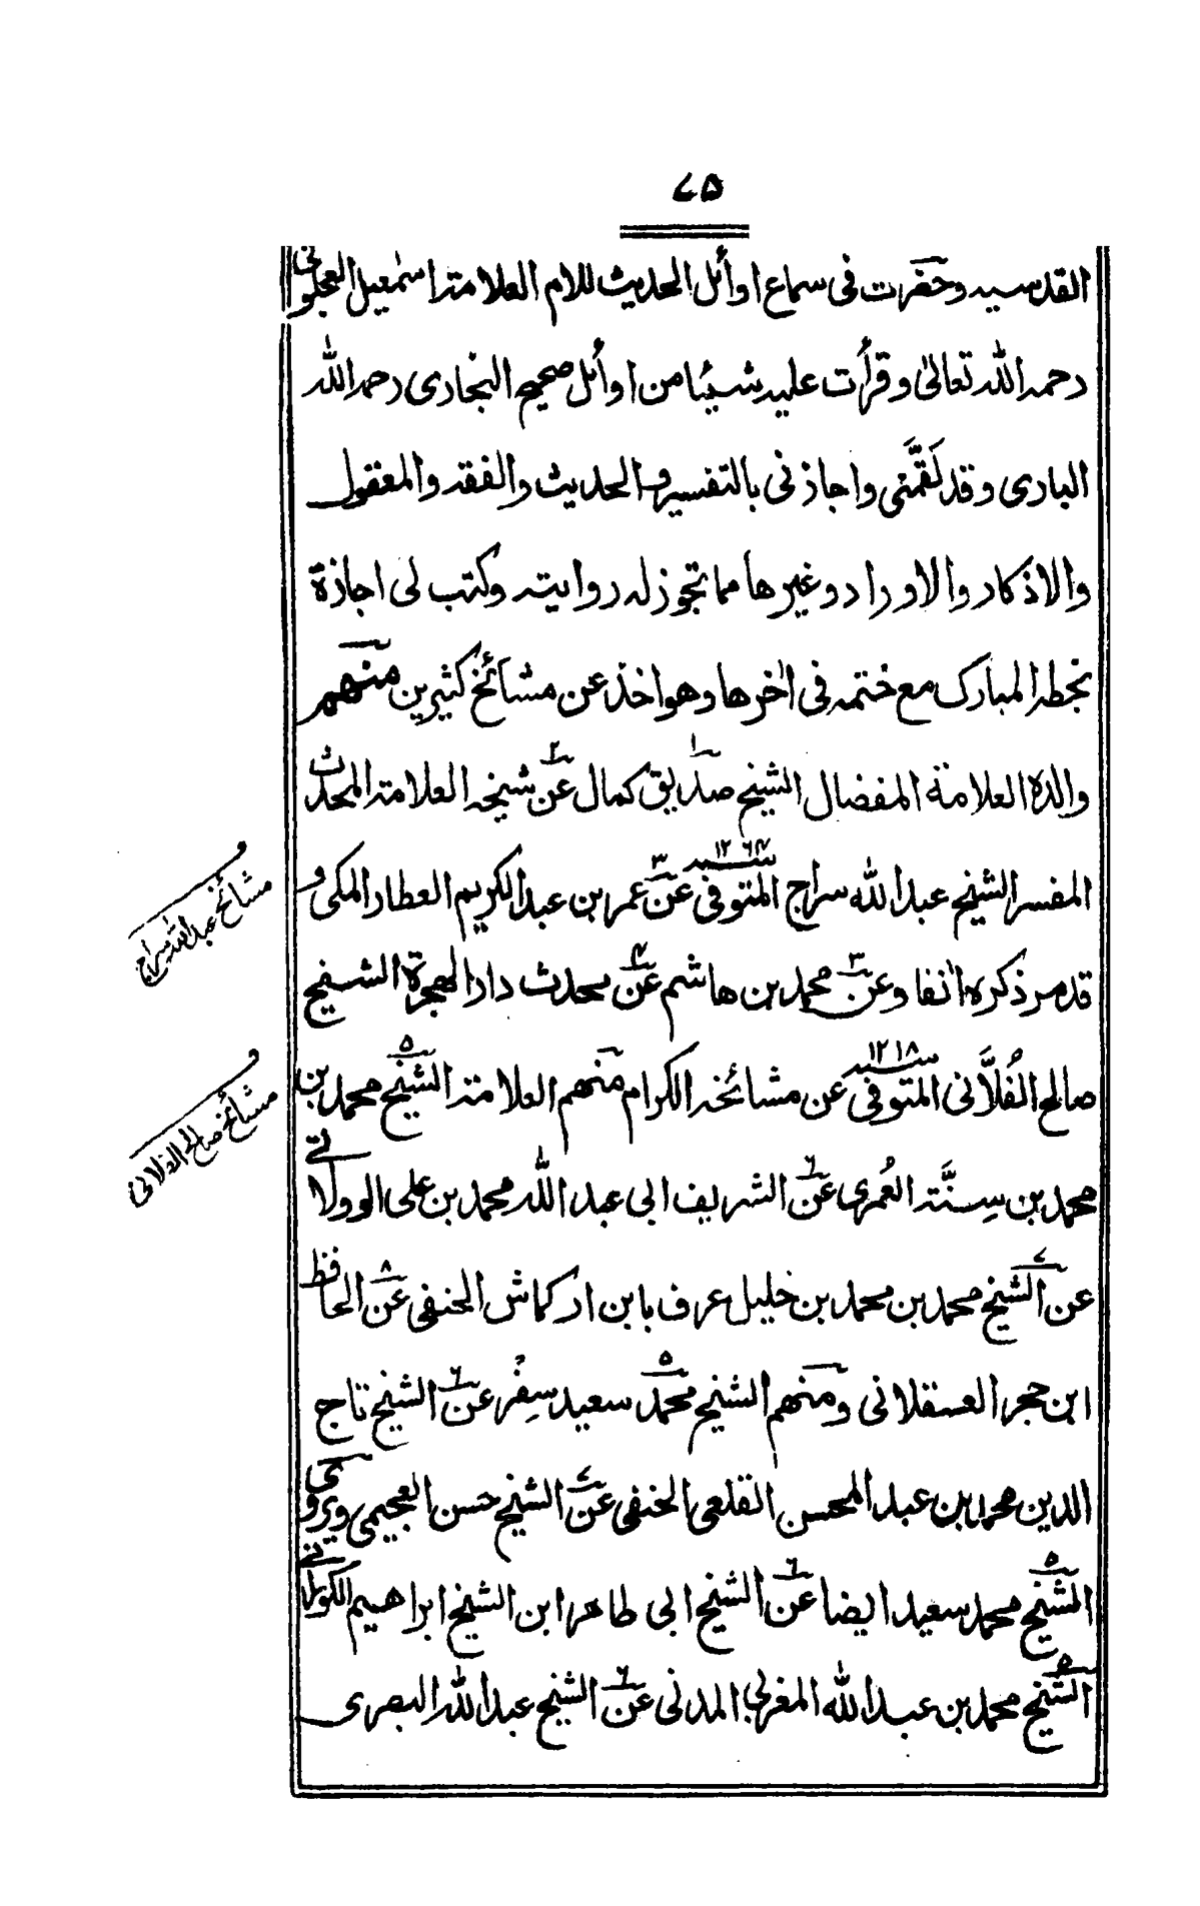 ٧٥
القدسيه وحضرت فى سماع اوأئل الحديث للام العلامة اسمٰعيل العجلونى
رحمه الله تعالىٰ وقرأت عليه شيئا من اوأئل صحيح البخارى رحمه الله
البارى وقد لَقَّمَنى واجازنى بالتفسير والحديث والفقه والمعقول
والاذكار والاوراد وغيرها مما تجوز له روايته وكتب لى اجازة
بخطه المبارك مع ختمه فى اٰخرها وهو اخذ عن مشائخ كثيرين منهم
والده العلامة المفضال الشيخ صديق كمال ١ عن ٢ شيخه العلامة المحدث
المفسر الشيخ عبد الله سراج المتوفى سنه ١٢٦٤ عن ٣ عمر بن عبد الكريم العطار المكى و
قد مر ذكره اٰنفا وعن ٣ محمد بن هاشم عن ٤ محدث دار الهجرة الشيخ
صالح الفُلاَّنى المتوفى سنه ١٢١٨ عن مشائخه الكرام منهم العلامة الشيخ ٥ محمد بن
محمد بن سِنَّة العُمرى عن ٦ الشريف ابى عبد الله محمد بن على الوولاتے
عن الشيخ ٧ محمد بن محمد بن خليل عرف بابن اركماش الحنفى عن ٨ الحافظ
ابن حجر العسقلانى ومنهم الشيخ محمد ٥ سعيد سِفْر عن ٦ الشيخ تاج
الدين محمد بن عبد المحسن القلعى الحنفى عن ٧ الشيخ حسن العجيمى ويروى
الشيخ ٥ محمد سعيد ايضا عن ٦ الشيخ ابى طاهر ابن الشيخ ابراهيم الكورانے
الشيخ ٥ محمد بن عبد الله المغربى المدنى عن ٦ الشيخ عبد الله البصرى
و
مشائخ عبد الله سراج
و
مشائخ صالح الفلانى